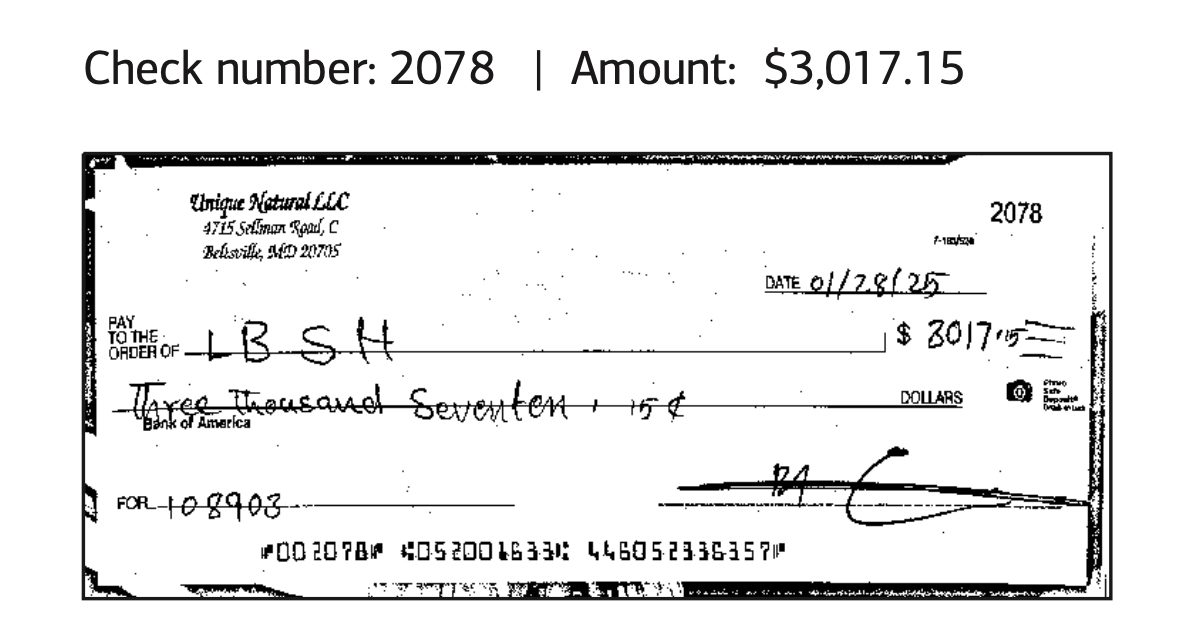 Check number: 2078 | Amount: $3,017.15
Unique Natural LLC
4715 Sellman Road, C
Beltsville, MD 20705
2078
7-163/520
DATE 01/28/25
PAY TO THE ORDER OF LBSH $ 3017.15
Three Thousand Seventen, 15¢ DOLLARS
Photo Safe Deposit®
Bank of America
FOR 108903
⑈002078⑈ ⑆052001633⑆ 446052336357⑈